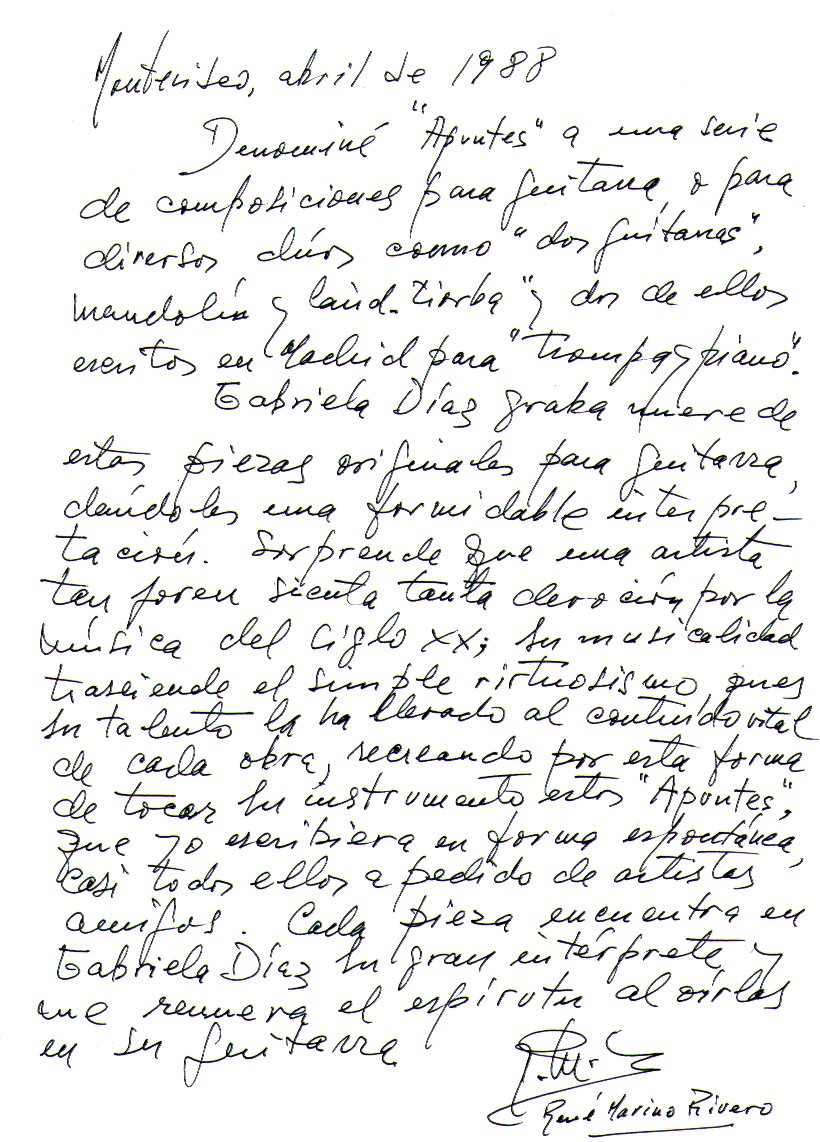 Montevideo, abril de 1988
Denominé "Apuntes" a una serie
de composiciones para guitarra, o para
diversos dúos como "dos guitarras",
mandolín y laúd-tiorba" y dos de ellos
escritos en Madrid para "trompa y piano".
Gabriela Díaz graba nueve de
estas piezas originales para guitarra,
dándoles una formidable interpre-
tación. Sorprende que una artista
tan joven sienta tanta devoción por la
música del siglo XX; su musicalidad
trasciende el simple virtuosismo, pues
su talento la ha llevado al contenido vital
de cada obra, recreando por esta forma
de tocar su instrumento estos "Apuntes",
que yo escribiera en forma espontánea,
casi todos ellos a pedido de artistas
amigos. Cada pieza encuentra en
Gabriela Díaz su gran intérprete y
me renueva el espíritu al oírlas
en su guitarra
R.M.R.
René Marino Rivero